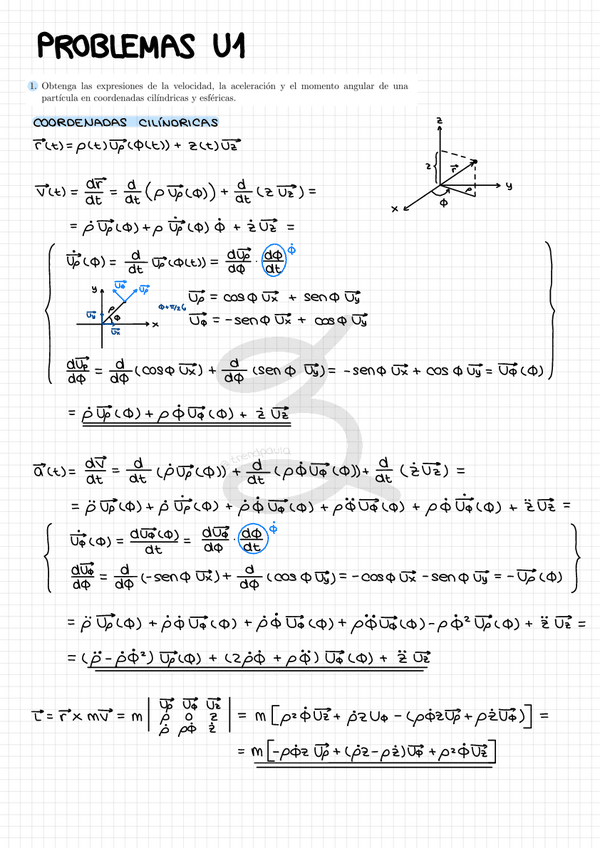 PROBLEMAS U1
1. Obtenga las expresiones de la velocidad, la aceleración y el momento angular de una
partícula en coordenadas cilíndricas y esféricas.
COORDENADAS CILÍNDRICAS
r⃗(t) = ρ(t) u⃗ρ(ϕ(t)) + z(t) u⃗z
z
z r⃗
y
x ϕ ρ
v⃗(t) = dr⃗/dt = d/dt (ρ u⃗ρ(ϕ)) + d/dt (z u⃗z) =
= ρ̇ u⃗ρ(ϕ) + ρ u⃗̇ρ(ϕ) ϕ̇ + ż u⃗z =
u⃗̇ρ(ϕ) = d/dt u⃗ρ(ϕ(t)) = du⃗ρ/dϕ · dϕ/dt ϕ̇
y u⃗ϕ u⃗ρ
u⃗y ρ ϕ x
u⃗x
ϕ+π/2
u⃗ρ = cos ϕ u⃗x + sen ϕ u⃗y
u⃗ϕ = -sen ϕ u⃗x + cos ϕ u⃗y
du⃗ρ/dϕ = d/dϕ (cos ϕ u⃗x) + d/dϕ (sen ϕ u⃗y) = -sen ϕ u⃗x + cos ϕ u⃗y = u⃗ϕ(ϕ)
= ρ̇ u⃗ρ(ϕ) + ρ ϕ̇ u⃗ϕ(ϕ) + ż u⃗z
a⃗(t) = dv⃗/dt = d/dt (ρ̇ u⃗ρ(ϕ)) + d/dt (ρ ϕ̇ u⃗ϕ(ϕ)) + d/dt (ż u⃗z) =
= ρ̈ u⃗ρ(ϕ) + ρ̇ u⃗̇ρ(ϕ) + ρ̇ ϕ̇ u⃗ϕ(ϕ) + ρ ϕ̈ u⃗ϕ(ϕ) + ρ ϕ̇ u⃗̇ϕ(ϕ) + z̈ u⃗z =
u⃗̇ϕ(ϕ) = du⃗ϕ(ϕ)/dt = du⃗ϕ/dϕ · dϕ/dt ϕ̇
du⃗ϕ/dϕ = d/dϕ (-sen ϕ u⃗x) + d/dϕ (cos ϕ u⃗y) = -cos ϕ u⃗x - sen ϕ u⃗y = -u⃗ρ(ϕ)
= ρ̈ u⃗ρ(ϕ) + ρ̇ ϕ̇ u⃗ϕ(ϕ) + ρ̇ ϕ̇ u⃗ϕ(ϕ) + ρ ϕ̈ u⃗ϕ(ϕ) - ρ ϕ̇² u⃗ρ(ϕ) + z̈ u⃗z =
= (ρ̈ - ρ ϕ̇²) u⃗ρ(ϕ) + (2ρ̇ϕ̇ + ρϕ̈) u⃗ϕ(ϕ) + z̈ u⃗z
L⃗ = r⃗ x m v⃗ = m | u⃗ρ u⃗ϕ u⃗z | = m [ρ²ϕ̇ u⃗z + ρ̇z uϕ - (ρϕ̇z u⃗ρ + ρż u⃗ϕ)] =
ρ 0 z
ρ̇ ρϕ̇ ż
= m [-ρϕ̇z u⃗ρ + (ρ̇z - ρż) u⃗ϕ + ρ²ϕ̇ u⃗z]